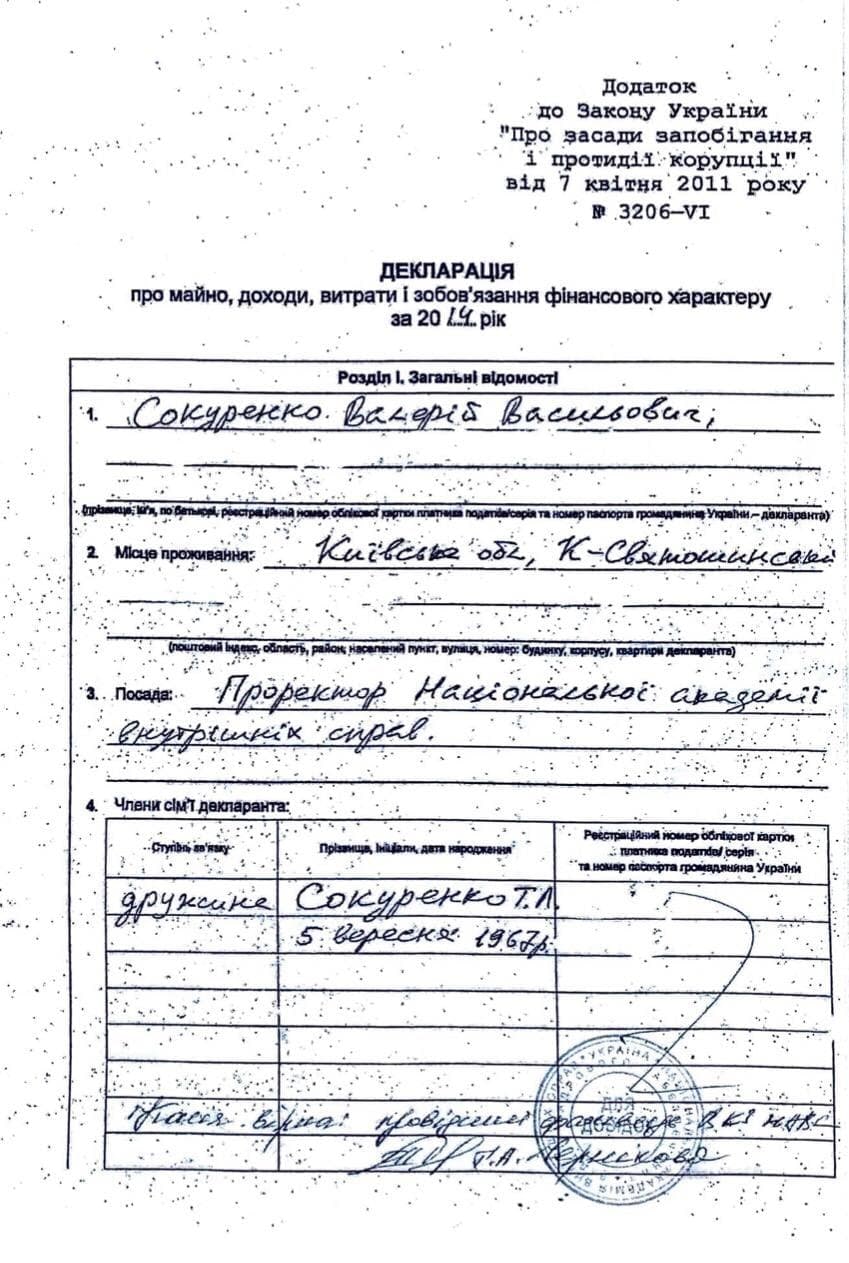 Додаток
до Закону України
"Про засади запобігання
і протидії корупції"
від 7 квітня 2011 року
№ 3206–VI
ДЕКЛАРАЦІЯ
про майно, доходи, витрати і зобов'язання фінансового характеру
за 2014 рік
Розділ І. Загальні відомості
1. Сокуренко Валерій Васильович,
(прізвище, ім'я, по батькові, реєстраційний номер облікової картки платника податків/серія та номер паспорта громадянина України – декларанта)
2. Місце проживання: Київська обл, К-Святошинський
(поштовий індекс, область, район, населений пункт, вулиця, номер: будинку, корпусу, квартири декларанта)
3. Посада: Проректор Національної академії
внутрішніх справ.
4. Члени сім'ї декларанта:
Ступінь зв'язку
Прізвище, ініціали, дата народження
Реєстраційний номер облікової картки
платника податків/ серія
та номер паспорта громадянина України
дружина Сокуренко Т.Л.
5 вересня 1967р.
УКРАЇНА
ДЛЯ
Копія вірна: провідний ВКЗ НАВС